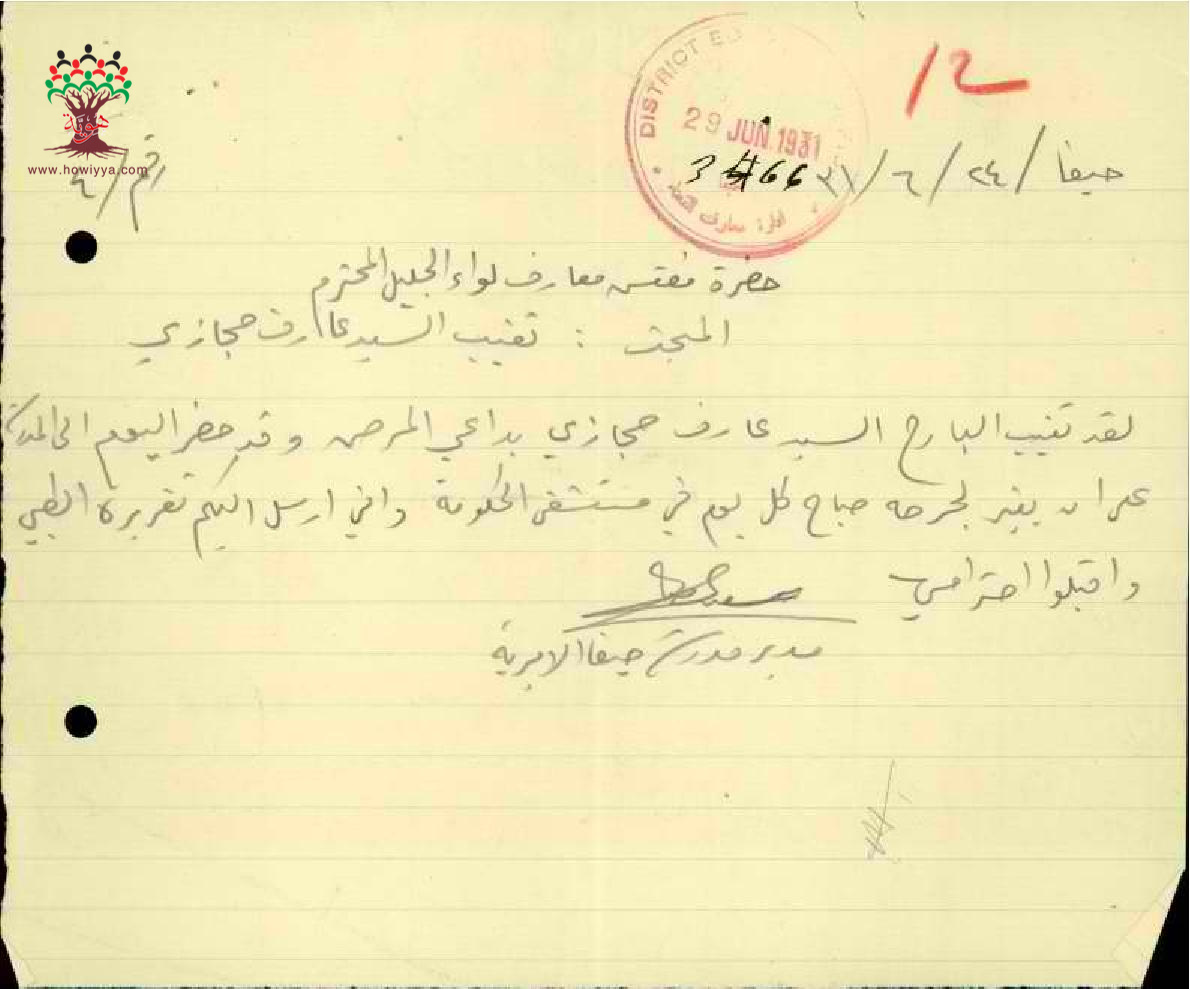 هوية
www.howiyya.com
12
DISTRICT ED
29 JUN 1931
ادارة معارف
3466
حيفا / ٢٤ / ٦ / ٣١
رقم / ٤
حضرة مفتش معارف لواء الجليل المحترم
المبحث : تغيب السيد عارف حجازي
لقد تغيب البارح السيد عارف حجازي بداعي المرض وقد حضر اليوم الى المدرسة
على ان يغير لجرحه صباح كل يوم في مستشفى الحكومة واني ارسل اليكم تقريره الطبي
واقبلوا احترامي
مدير مدرسة حيفا الاميرية